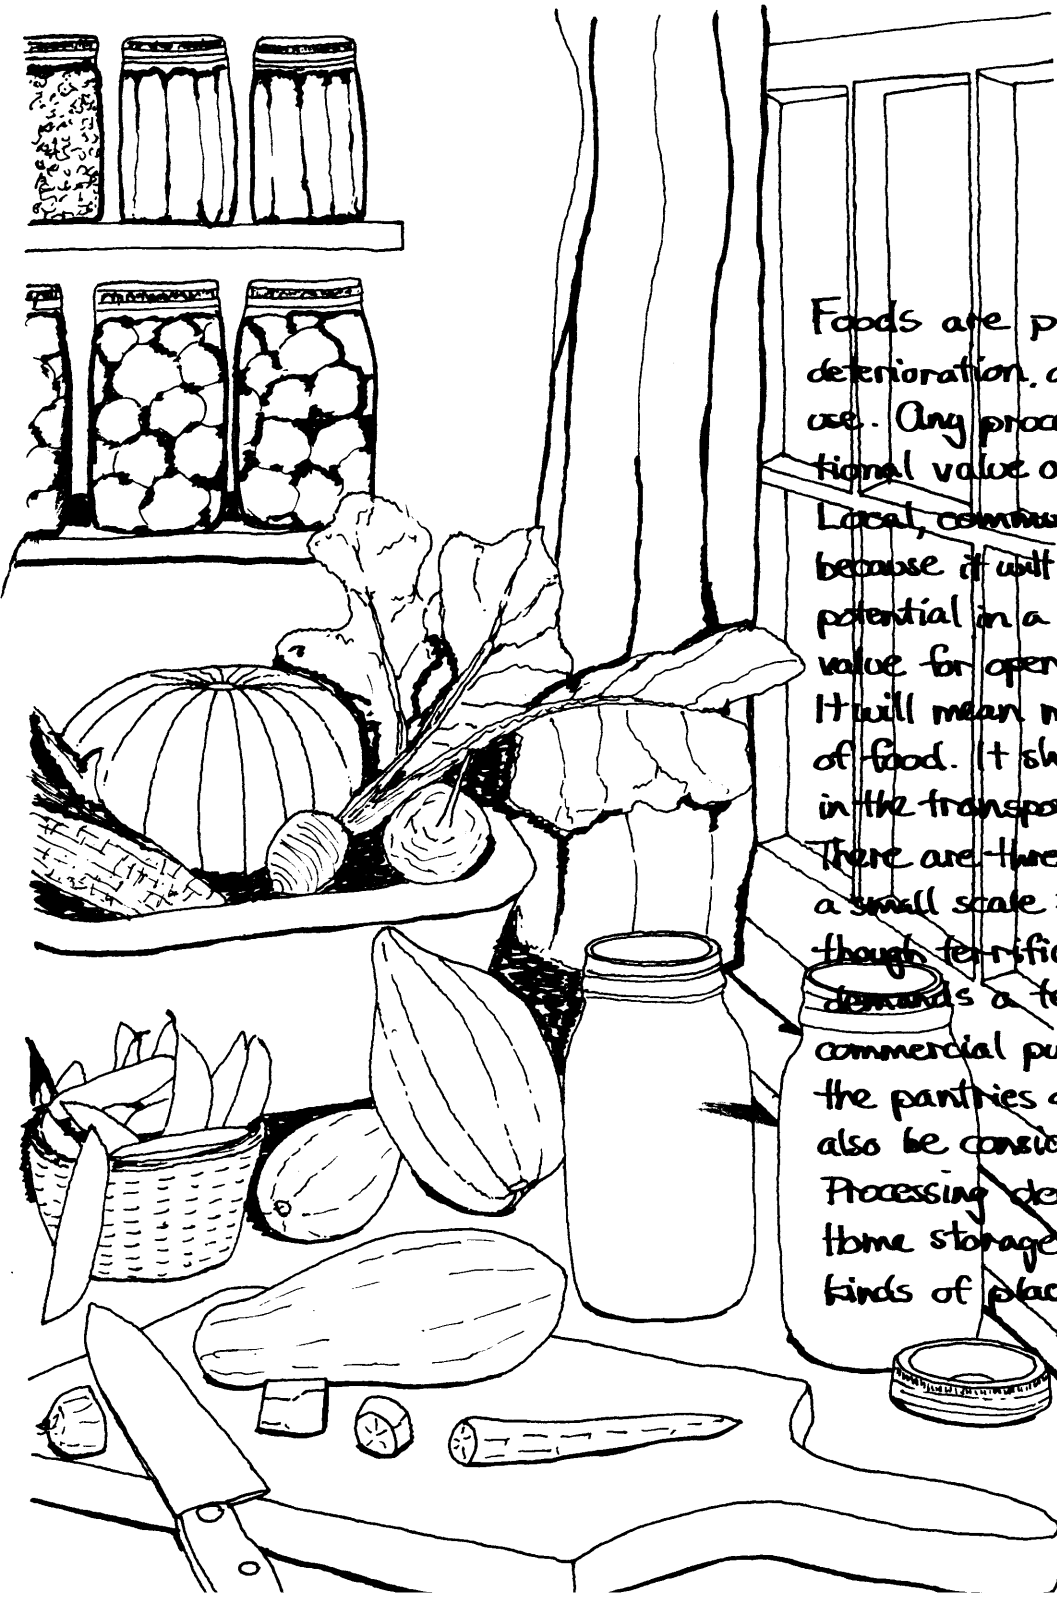 Foods are p
deterioration. a
use. Any proc
tional value o
Local, commu
because it will
potential in a
value for oper
It will mean m
of food. It sh
in the transpo
There are thre
a small scale
though terrific
demands a te
commercial pu
the pantries
also be consid
Processing de
Home storage
kinds of plac